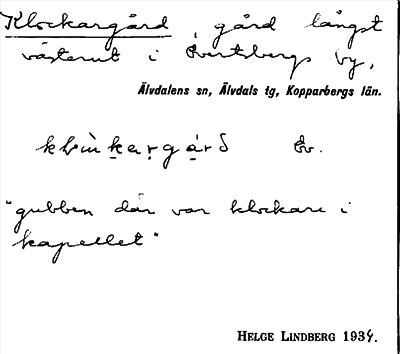 Klockargård, gård längst
västerut i Evertsbergs by,
Älvdalens sn, Älvdals tg, Kopparbergs län.
Ev.
"gubben där var klockare i
kapellet"
HELGE LINDBERG 1934.